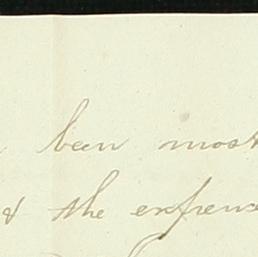 been most
& the expense